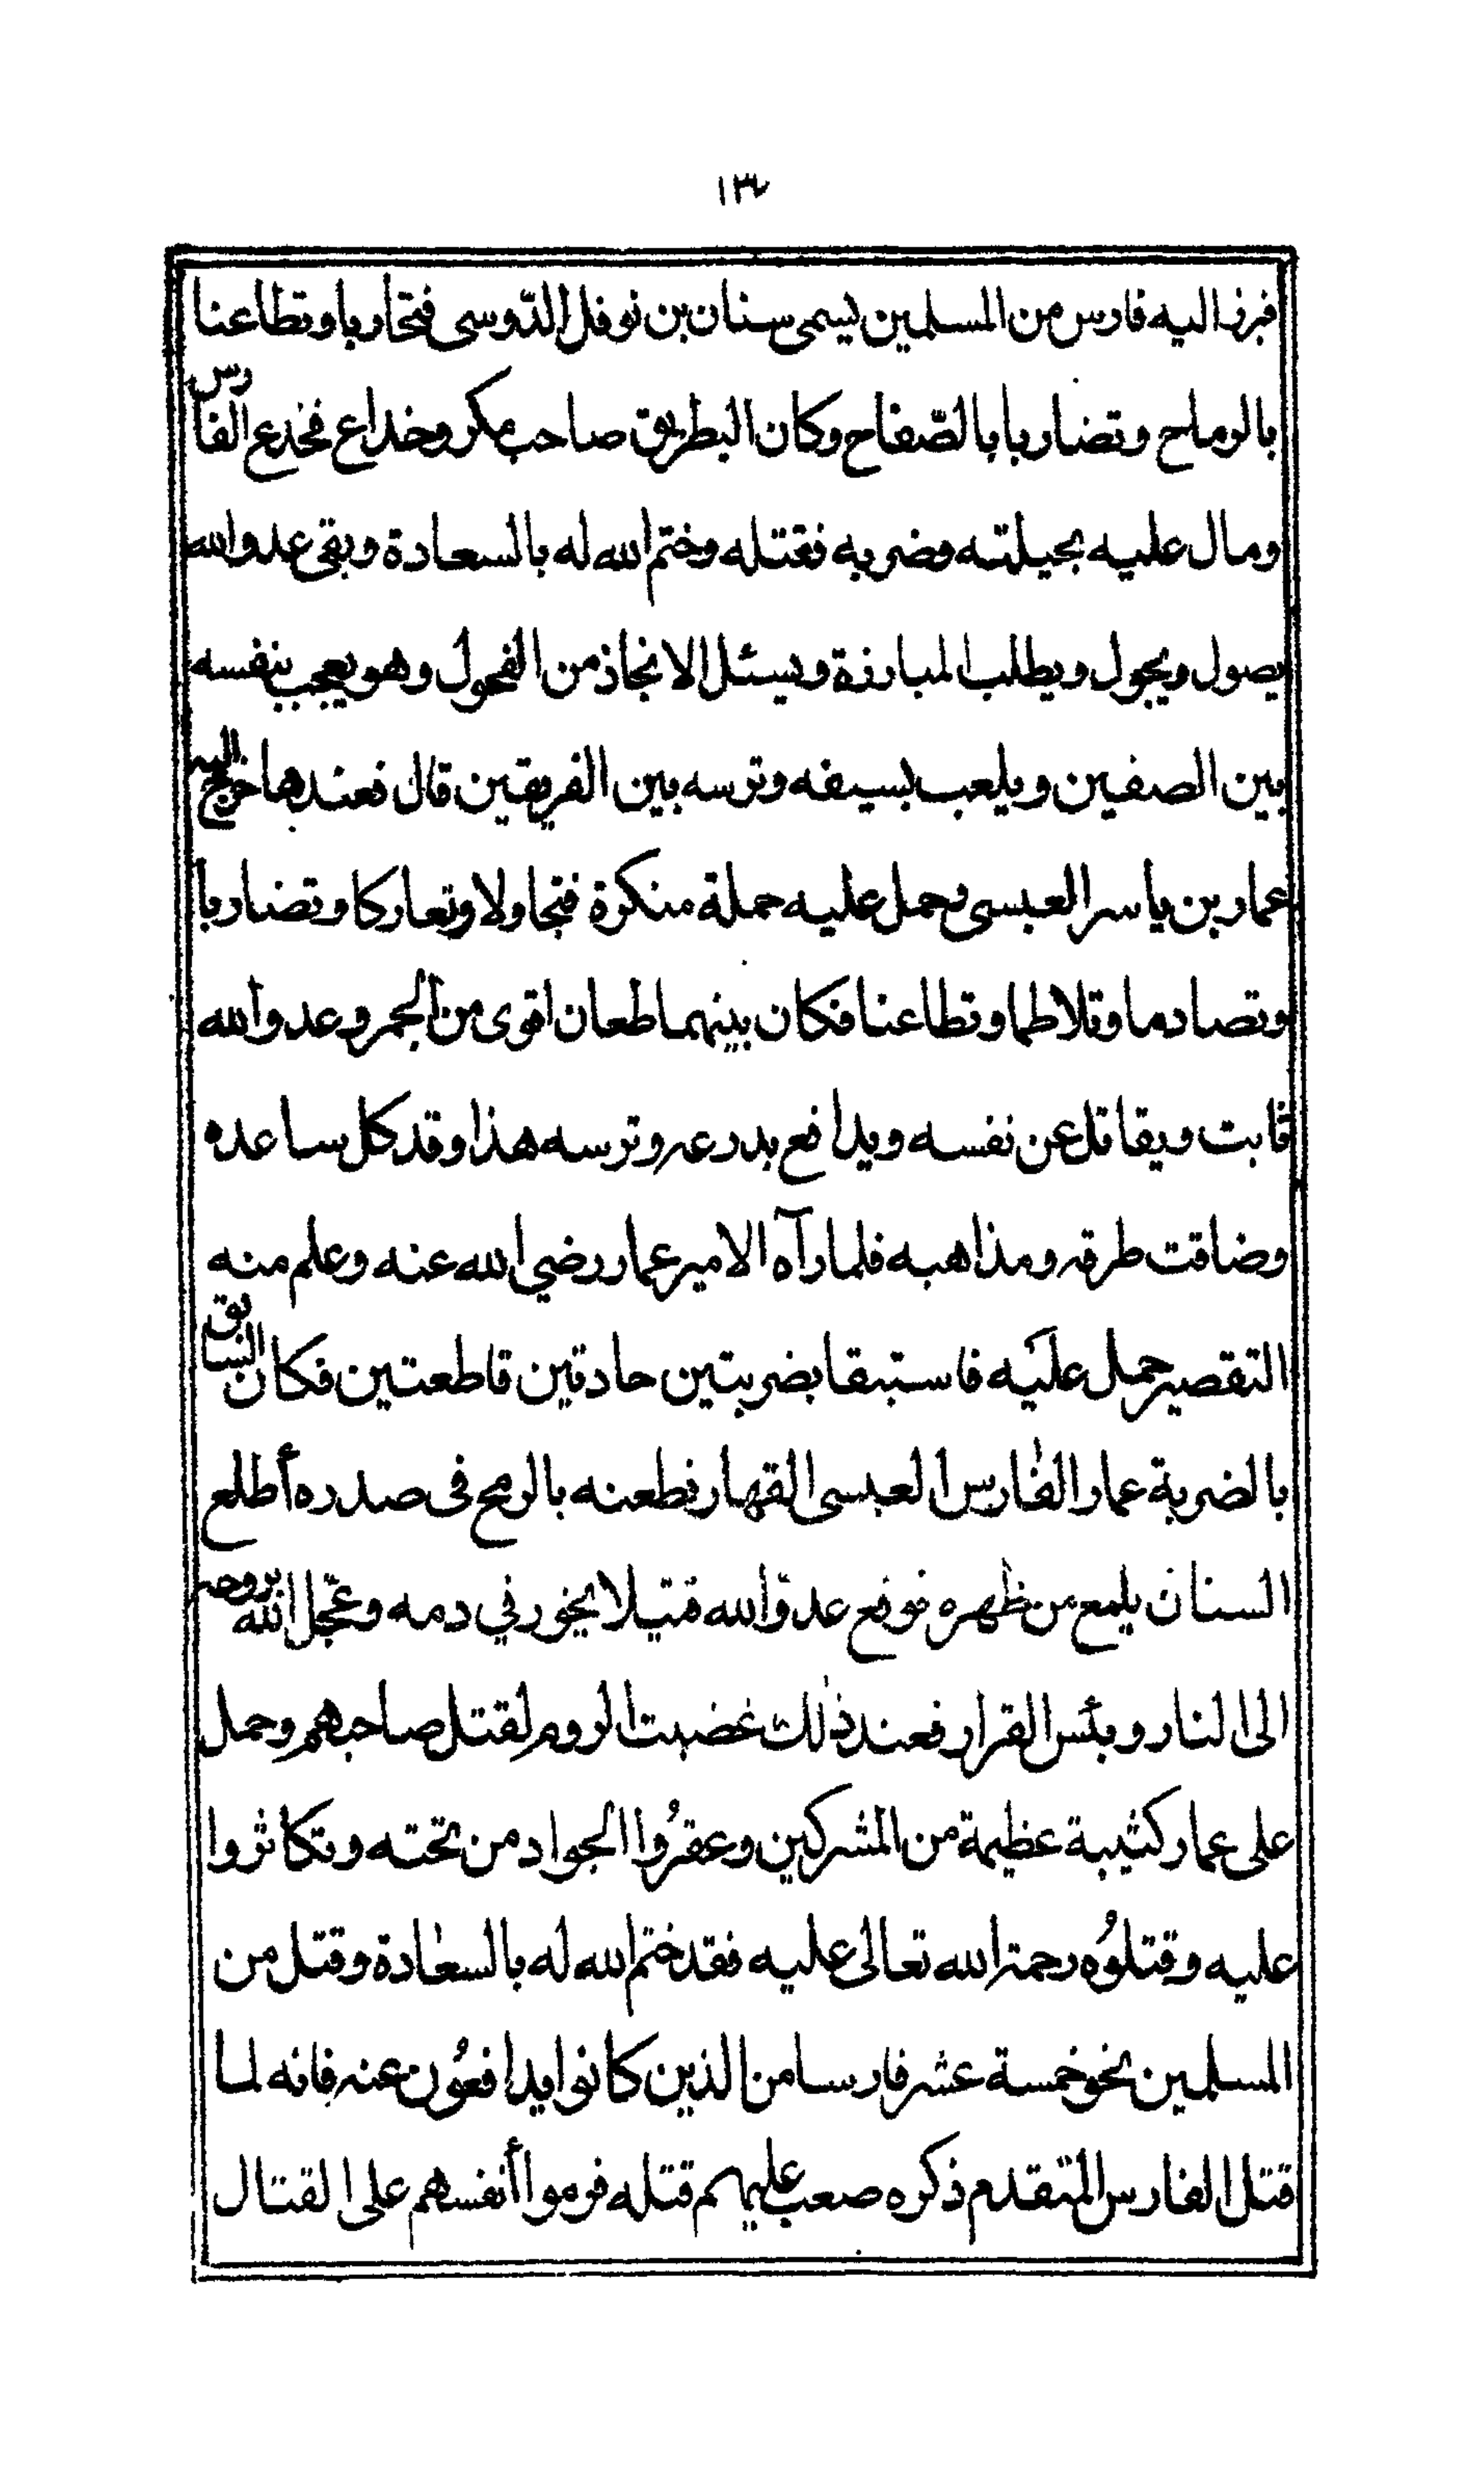 ١٣
فبرز اليه فارس من المسلمين يسمى سنان بن نوفل الدّوسى فتحاربا وتطاعنا
بالرماح وتضاربا بالصّفاح وكان البطريق صاحب مكر وخداع فخدع الفارس
ومال عليه بحيلته وضربه فقتله وختم الله له بالسعادة وبقى عدو الله
يصول ويجول ويطلب المبارزة ويسئل الانجاز من الفحول وهو يعجب بنفسه
بين الصفين ويلعب بسيفه وترسه بين الفريقين قال فعندها خرج اليه
عمار بن ياسر العبسى وحمل عليه حملة منكرة فتجاولا وتعاركا وتضاربا
وتصادما وتلاطما وتطاعنا فكان بينهما طعان اقوى من الجمر وعدو الله
ثابت ويقاتل عن نفسه ويدافع بدرعه وترسه هذا وقد كل ساعده
وضاقت طرقه ومذاهبه فلما رآه الامير عمار رضي الله عنه وعلم منه
التقصير حمل عليه فاستبقا بضربتين حادتين قاطعتين فكان السابق
بالضربة عمار الفارس العبسى القهار فطعنه بالرمح فى صدره أطلع
السنان يلمع من ظهره فوقع عدوّ الله قتيلا يخور في دمه وعجّل الله بروحه
الى النار وبئس القرار فعند ذلك غضبت الروم لقتل صاحبهم وحمل
على عمار كثيبة عظيمة من المشركين وعقرُوا الجواد من تحته وتكاثروا
عليه وقتلوُه رحمة الله تعالى عليه فقد ختم الله له بالسعادة وقتل من
المسلمين نحو خمسة عشر فارسا من الذين كانوا يدافعُون عنه فانه لما
قتل الفارس المتقدم ذكره صعب عليهم قتله فرموا أنفسهم على القتال